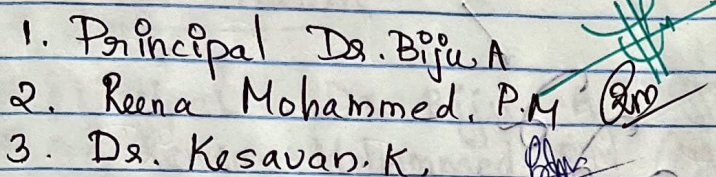 1. Principal Dr. Biju A
2. Reena Mohammed. P.M
3. Dr. Kesavan. K.